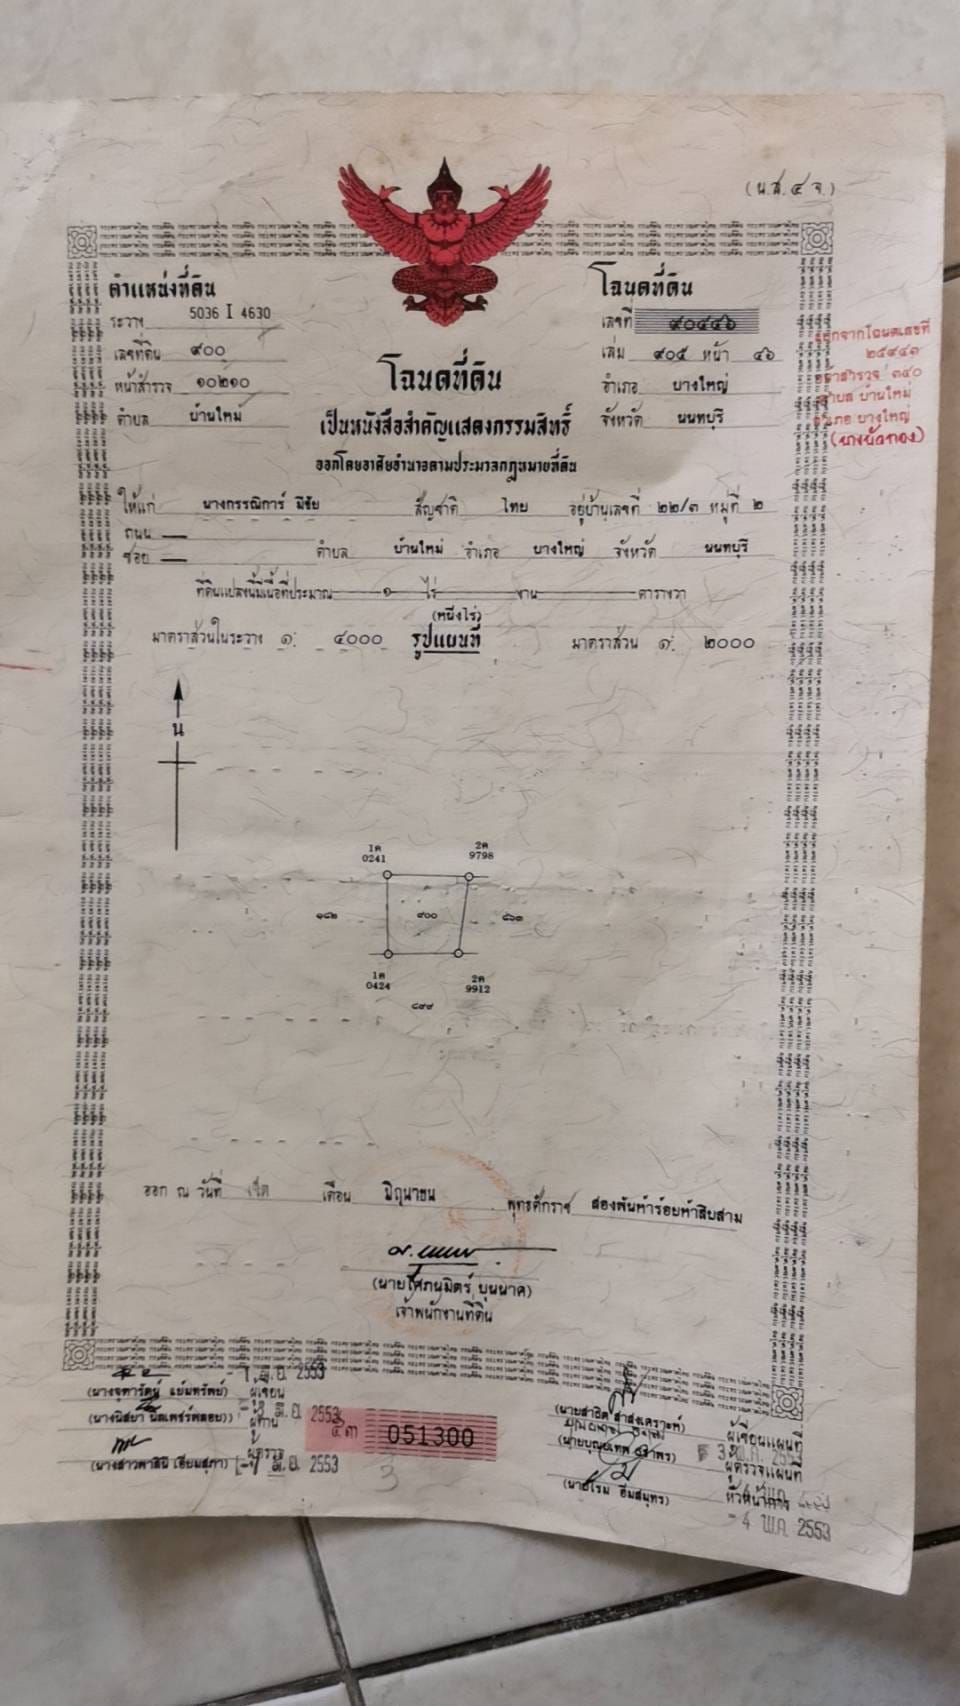 (น.ส.๔ จ.)
ตำแหน่งที่ดิน
ระวาง 5036 I 4630
เลขที่ดิน ๙๐๐
หน้าสำรวจ ๑๐๒๑๐
ตำบล บ้านใหม่
โฉนดที่ดิน
เลขที่ ๙๐๔๔๖
เล่ม ๙๐๕ หน้า ๔๖
อำเภอ บางใหญ่
จังหวัด นนทบุรี
ออกจากโฉนดเลขที่
๒๕๙๔๑
หน้าสำรวจ ๓๔๐
ตำบล บ้านใหม่
อำเภอ บางใหญ่
โฉนดที่ดิน
เป็นหนังสือสำคัญแสดงกรรมสิทธิ์
ออกโดยอาศัยอำนาจตามประมวลกฎหมายที่ดิน
ให้แก่ นางกรรณิการ์ มีชัย สัญชาติ ไทย อยู่บ้านเลขที่ ๒๒/๓ หมู่ที่ ๒
ถนน —
ซอย — ตำบล บ้านใหม่ อำเภอ บางใหญ่ จังหวัด นนทบุรี
ที่ดินแปลงนี้มีเนื้อที่ประมาณ ๑ ไร่ งาน ตารางวา
(หนึ่งไร่)
มาตราส่วนในระวาง ๑: ๔๐๐๐ รูปแผนที่ มาตราส่วน ๑: ๒๐๐๐
น
1ค 2ค
0241 9798
๑๘๒ ๙๐๐ ๘๖๓
1ค 2ค
0424 9912
๘๙๙
ออก ณ วันที่ เจ็ด เดือน มิถุนายน พุทธศักราช สองพันห้าร้อยห้าสิบสาม
(นายโศภนมิตร์ บุนนาค)
เจ้าพนักงานที่ดิน
มิ.ย. 2553
(นางจุฑารัตน์ แย้มทรัพย์) ผู้เขียน
มิ.ย. 2553
ผู้ทาน
ผู้ตรวจ
มิ.ย. 2553
051300
ผู้เขียนแผนที่
3 พ.ค. 2553
ผู้ตรวจแผนที่
(นายโรม อิ่มสมุทร) หัวหน้าการ
- 4 พ.ค. 2553